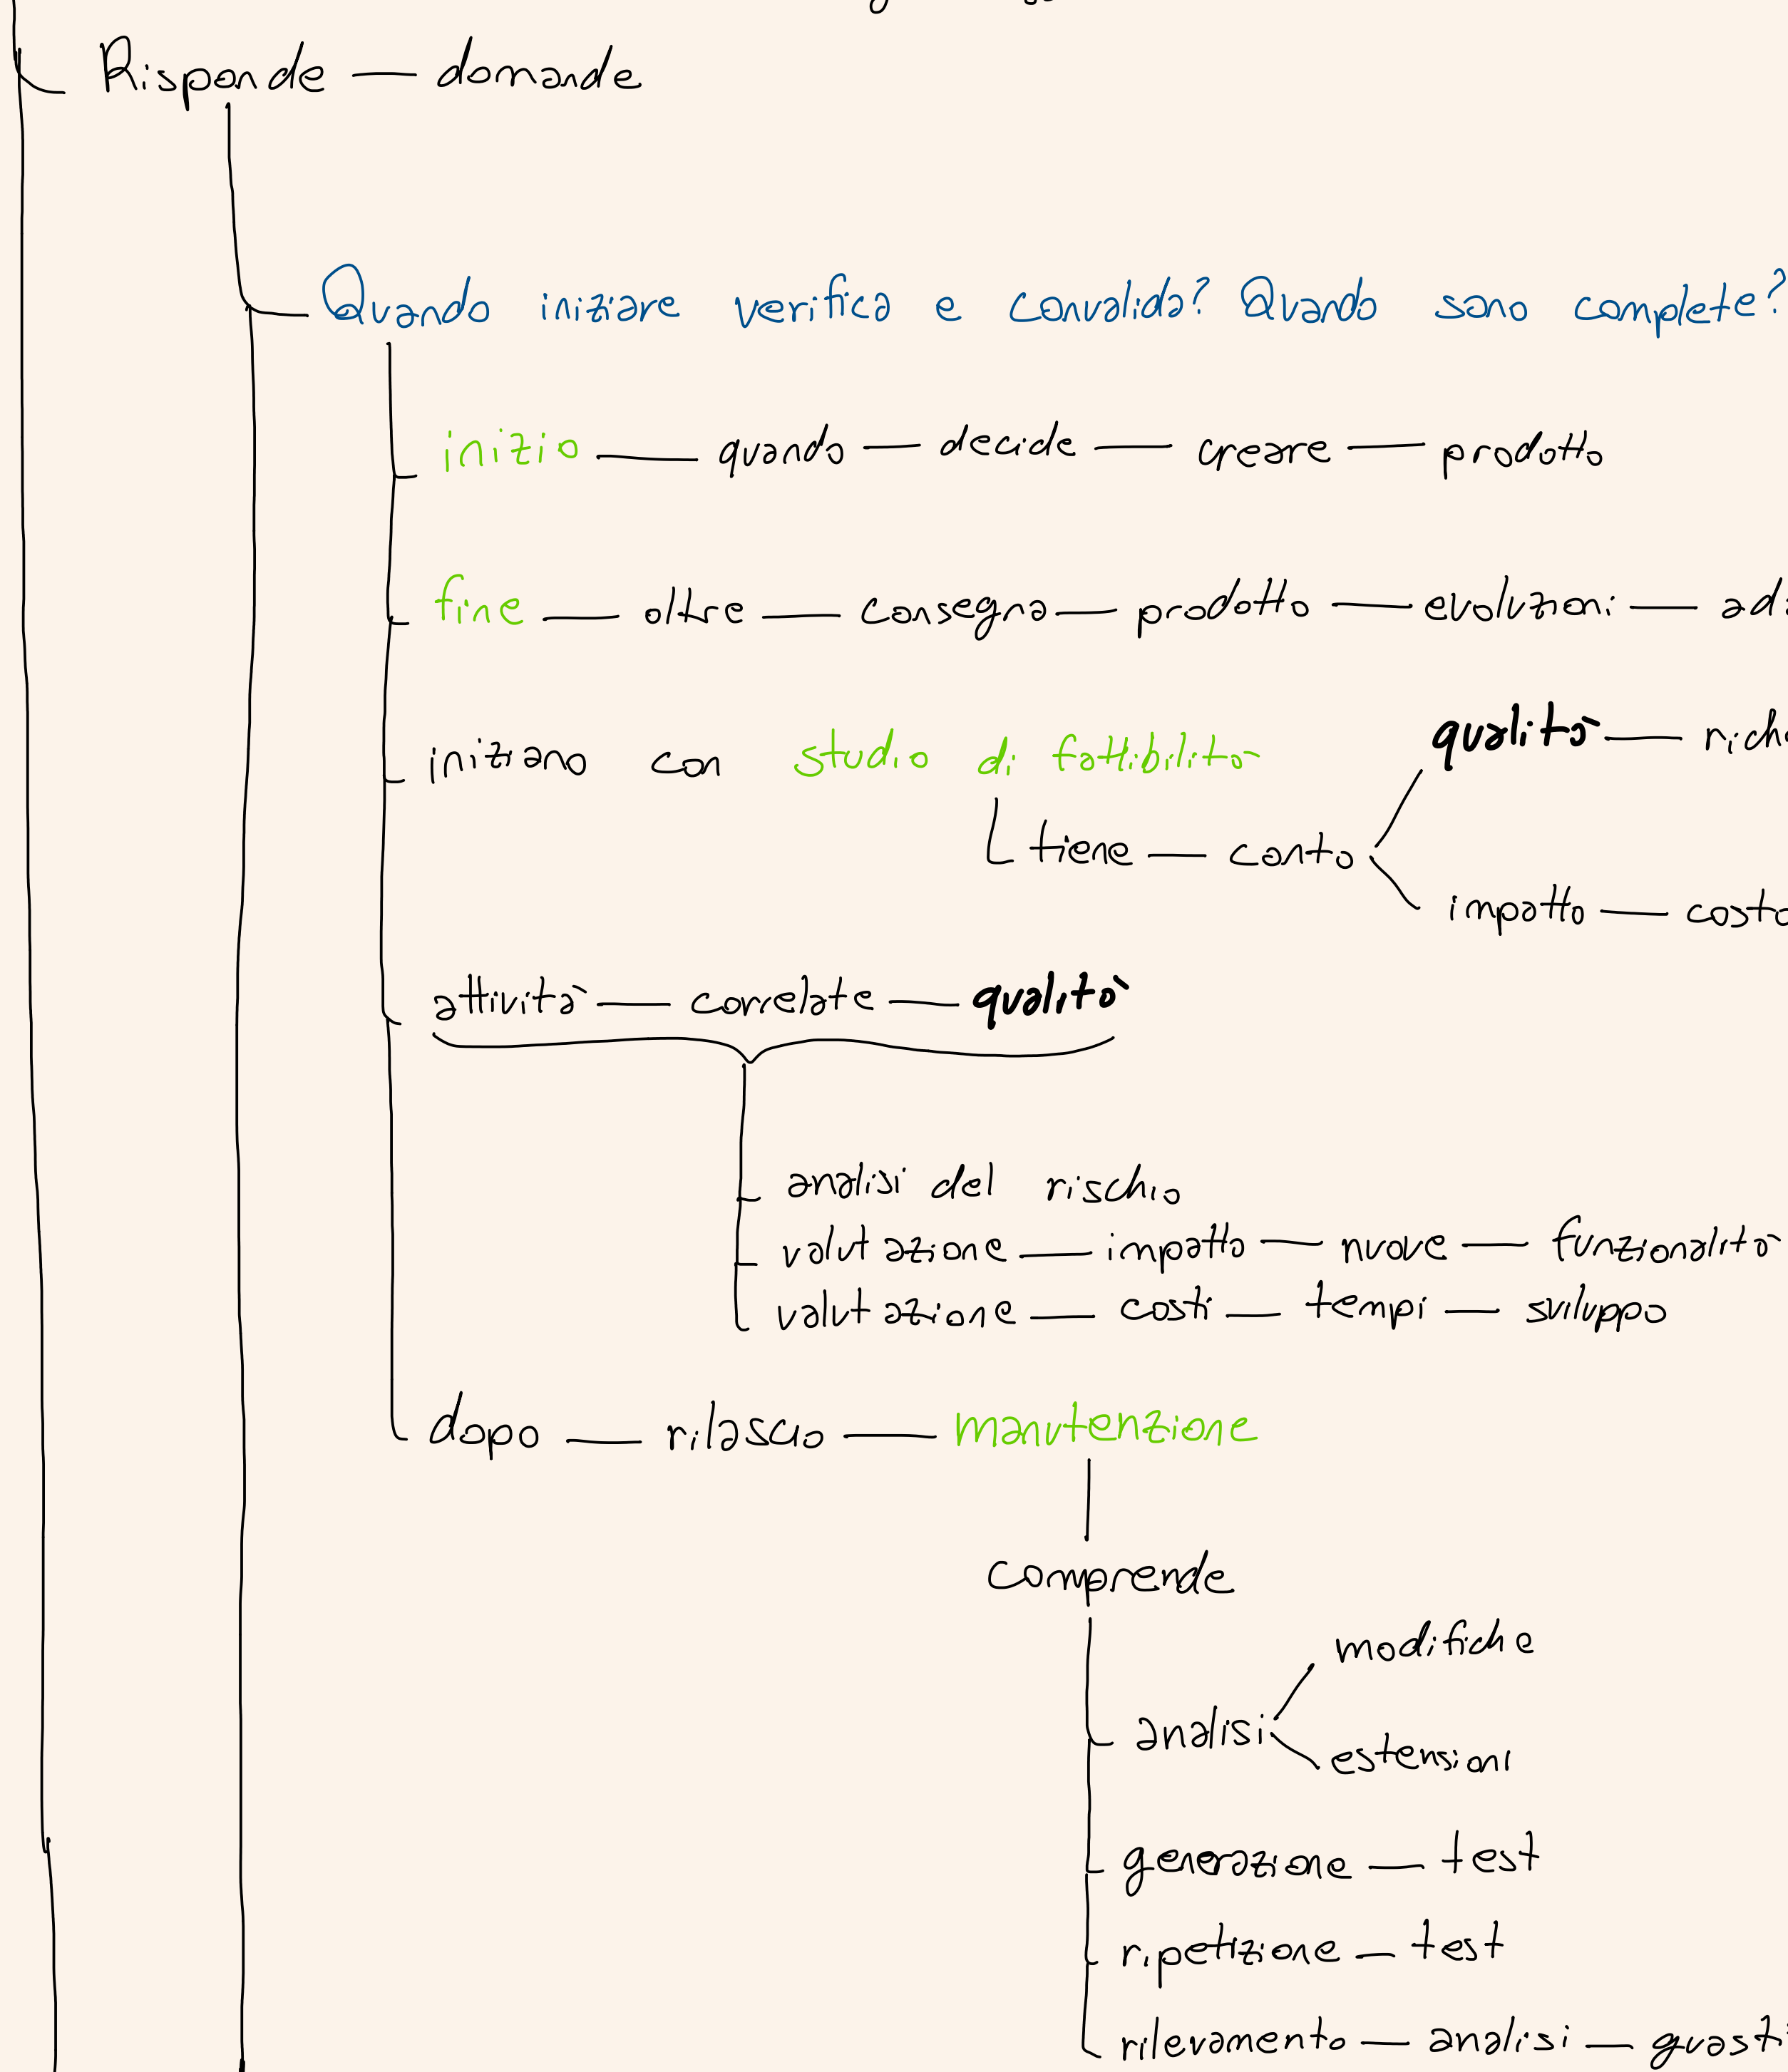 Risponde — domande
Quando iniziare verifica e convalida? Quando sono complete?
inizio — quando — decide — creare — prodotto
fine — oltre — consegna — prodotto — evoluzioni —
iniziano con studio di fattibilità
qualità —
tiene — conto
impatto — costo
attività — correlate — qualità
analisi del rischio
valutazione — impatto — nuove — funzionalità
valutazione — costi — tempi — sviluppo
dopo — rilascio — manutenzione
comprende
modifiche
analisi
estensioni
generazione — test
ripetizione — test
rilevamento — analisi — guasti